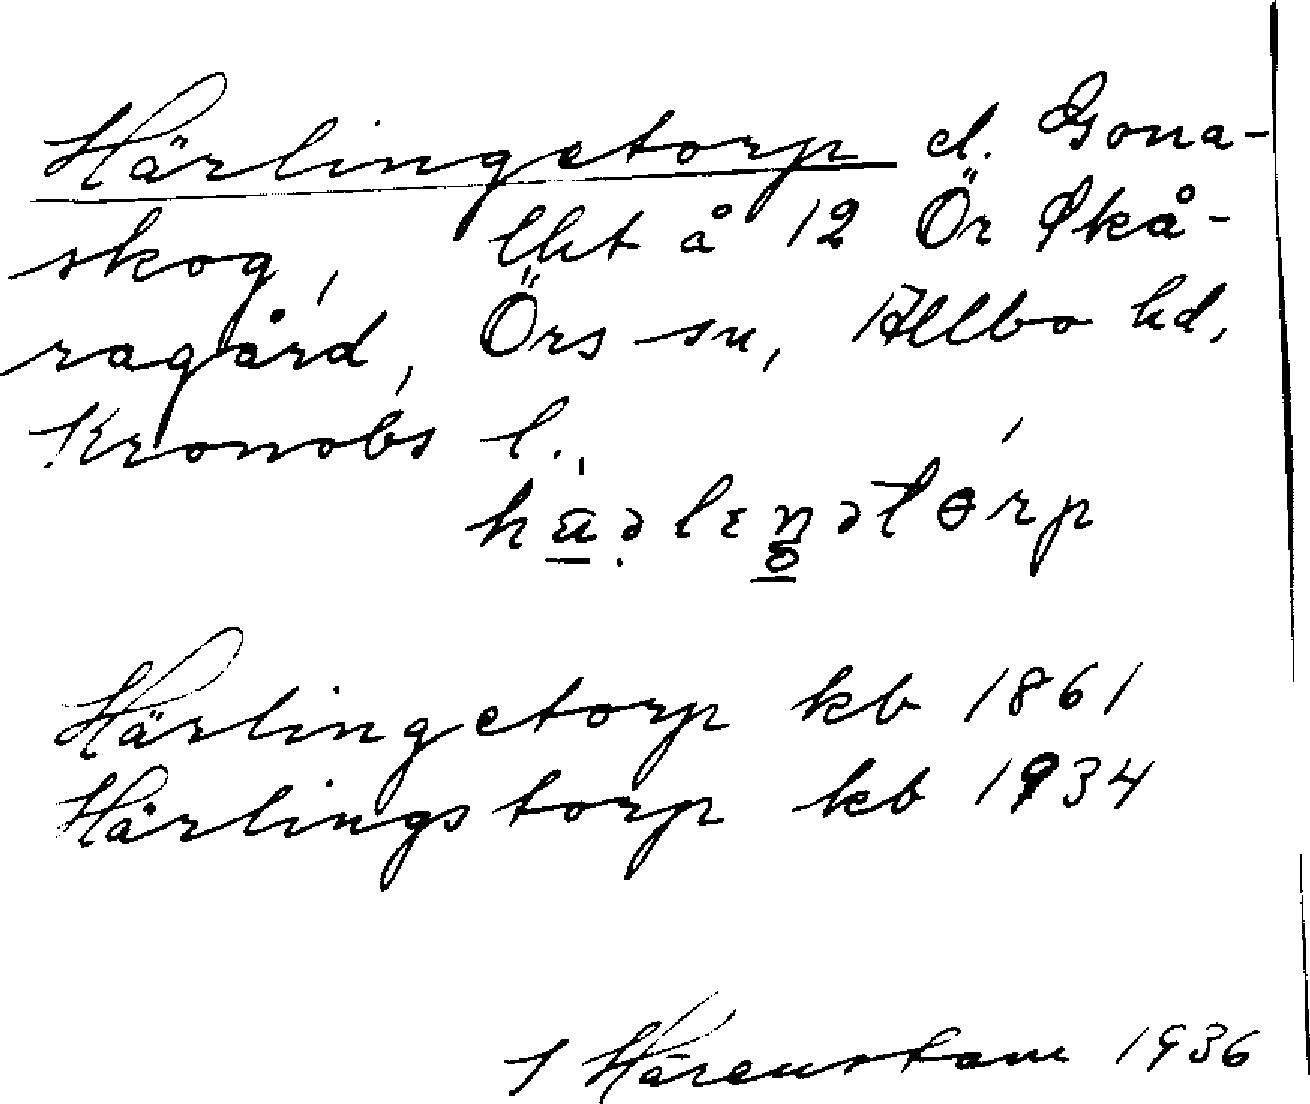 Härlingetorp el. Gona-
skog, lht å 12 Ör Skå-
ragård, Örs sn, Allbo hd,
Kronobs l.
Härlingetorp kb 1861
Härlingstorp kb 1934
S Hårenstam 1936